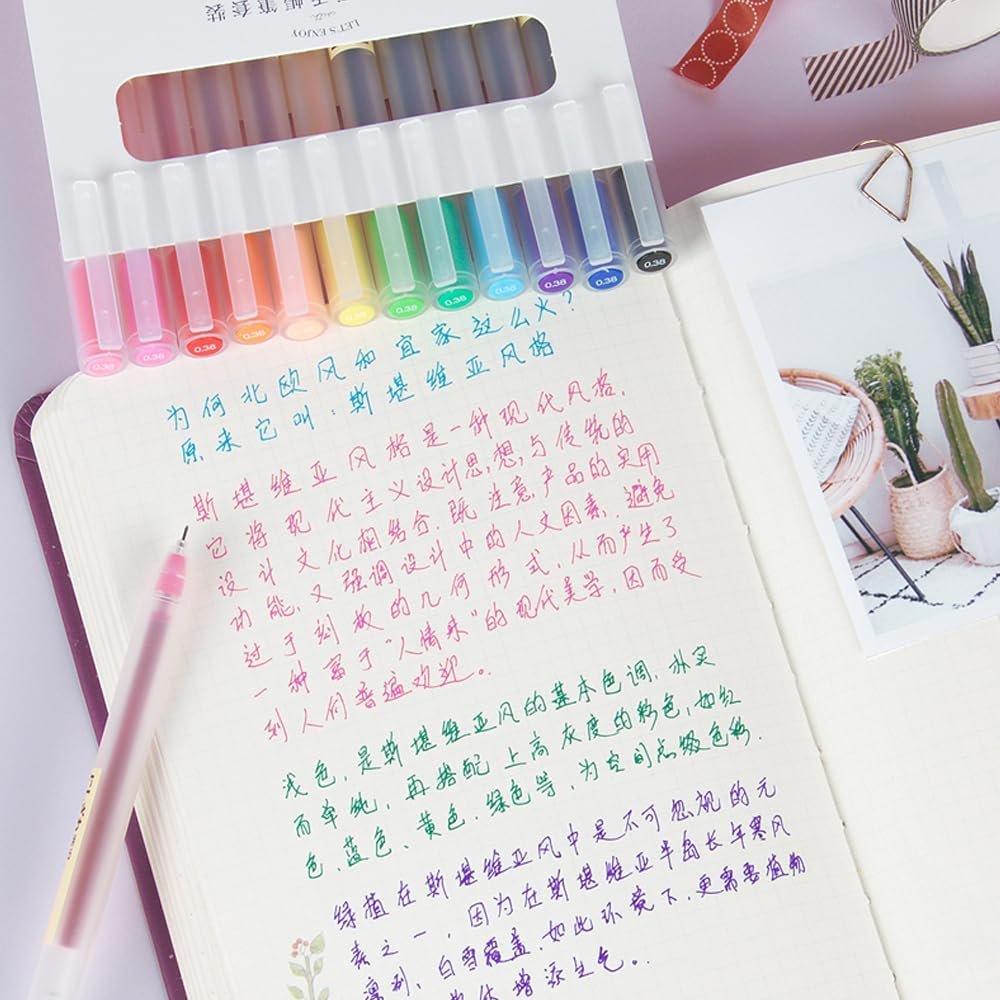 手帳筆套裝
LET'S ENJOY
0.38
0.38
0.38
0.38
0.38
0.38
0.38
0.38
0.38
0.38
0.38
0.38
为何北欧风和宜家这么火?
原来它叫:斯堪维亚风格
斯堪维亚风格是一种现代风格,
它将现代主义设计思想,与传统的
设计文化相结合.既注意,产品的实用
功能,又强调设计中的人文因素.避免
过于刻板的几何形式,从而产生了
一种富于“人情味”的现代美学,因而受
到人们普遍欢迎。
浅色,是斯堪维亚风的基本色调,朴实
而单纯,再搭配上高灰度的彩色,如红
色、蓝色、黄色.绿色等,为空间点缀色彩.
绿植在斯堪维亚风中是不可忽视的元
素之一,因为在斯堪维亚半岛长年寒风
凛冽,白雪覆盖.如此环境下,更需要植物
增添生气。.